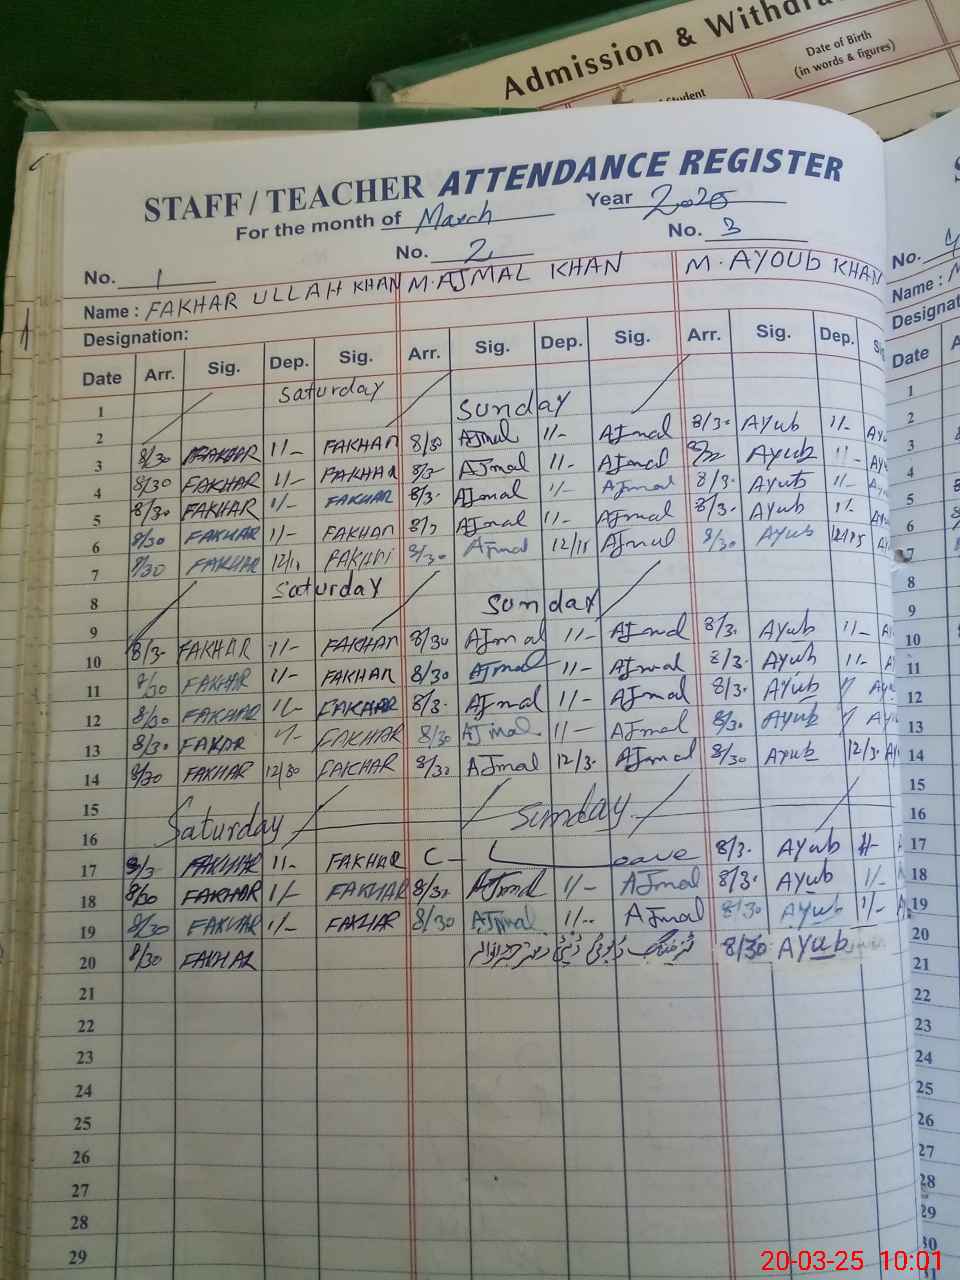 Admission & Withdra
Date of Birth
(in words & figures)
Student
STAFF / TEACHER ATTENDANCE REGISTER
For the month of March Year 2025
No. 1 No. 2 No. 3
Name : FAKHAR ULLAH KHAN M. AJMAL KHAN M. AYOUB KHAN
Designation:
Date Arr. Sig. Dep. Sig. Arr. Sig. Dep. Sig. Arr. Sig. Dep.
1 Saturday
2 Sunday
3 8/30 FAKHAR 11/- FAKHAR 8/30 AJmal 11/- AJmal 8/3- AYub 11/-
4 8/30 FAKHAR 11/- FAKHAR AJmal 11/- AJmal AYub 11/-
5 8/30 FAKHAR 11/- FAKHAR 8/3- AJmal 11/- AJmal 8/3- AYub 11/-
6 8/30 FAKHAR 11/- FAKHAR AJmal 11/- AJmal 8/3- AYub
7 8/30 FAKHAR FAKHAR 8/30 AJmal 12/15 AJmal 8/30 AYub 12/15
8 Saturday
9 Sunday
10 8/3- FAKHAR 11/- FAKHAR 8/30 AJmal 11/- AJmal 8/3- AYub 11/-
11 8/30 FAKHAR 11/- FAKHAR 8/30 AJmal 11/- AJmal 8/3- AYub 11/-
12 8/30 FAKHAR 11/- FAKHAR 8/3- AJmal 11/- AJmal 8/3- AYub
13 8/30 FAKAR FAKHAR 8/30 AJmal 11/- AJmal 8/30 AYub
14 8/30 FAKHAR 12/30 FAKHAR 8/30 AJmal 12/3- AJmal 8/30 AYub 12/3-
15 Saturday
16 Sunday
17 FAKHAR 11/- FAKHAR C - Leave 8/3- AYub
18 8/30 FAKHAR 1/- FAKHAR 8/30 AJmal 1/- AJmal 8/3- AYub 1/-
19 8/30 FAKHAR 1/- FAKHAR 8/30 AJmal 11/- AJmal 8/30 AYub 1/-
20 8/30 FAKHAR 8/30 AYub
21
22
23
24
25
26
27
28
29
No.
Name :
Date
1
2
3
4
5
6
7
8
9
10
11
12
13
14
15
16
17
18
19
20
21
22
23
24
25
26
27
28
29
30
20-03-25 10:01